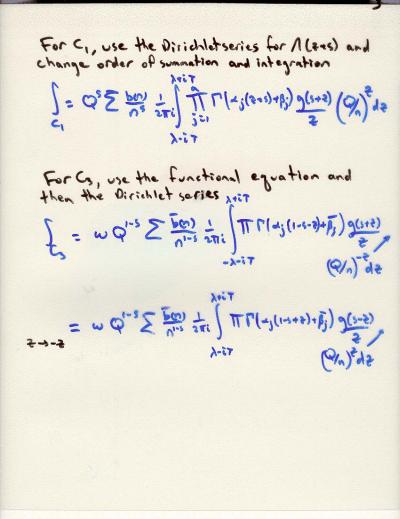 For C₁, use the Dirichlet series for Λ(z+s) and
change order of summation and integration
∫_{C₁} = Q^s Σ b(n)/n^s 1/2πi ∫_{λ-iT}^{λ+iT} ∏_{j=1} Γ(α_j(z+s)+β_j) g(s+z)/z (Q/n)^z dz
For C₃, use the functional equation and
then the Dirichlet series
∫_{C₃} = ω Q^{1-s} Σ b̄(n)/n^{1-s} 1/2πi ∫_{-λ-iT}^{λ+iT} ∏ Γ(α_j(1-s-z)+β̄_j) g(s+z)/z
(Q/n)^{-z} dz
= ω Q^{1-s} Σ b̄(n)/n^{1-s} 1/2πi ∫_{λ-iT}^{λ+iT} ∏ Γ(α_j(1-s+z)+β̄_j) g(s-z)/z
z→-z
(Q/n)^z dz